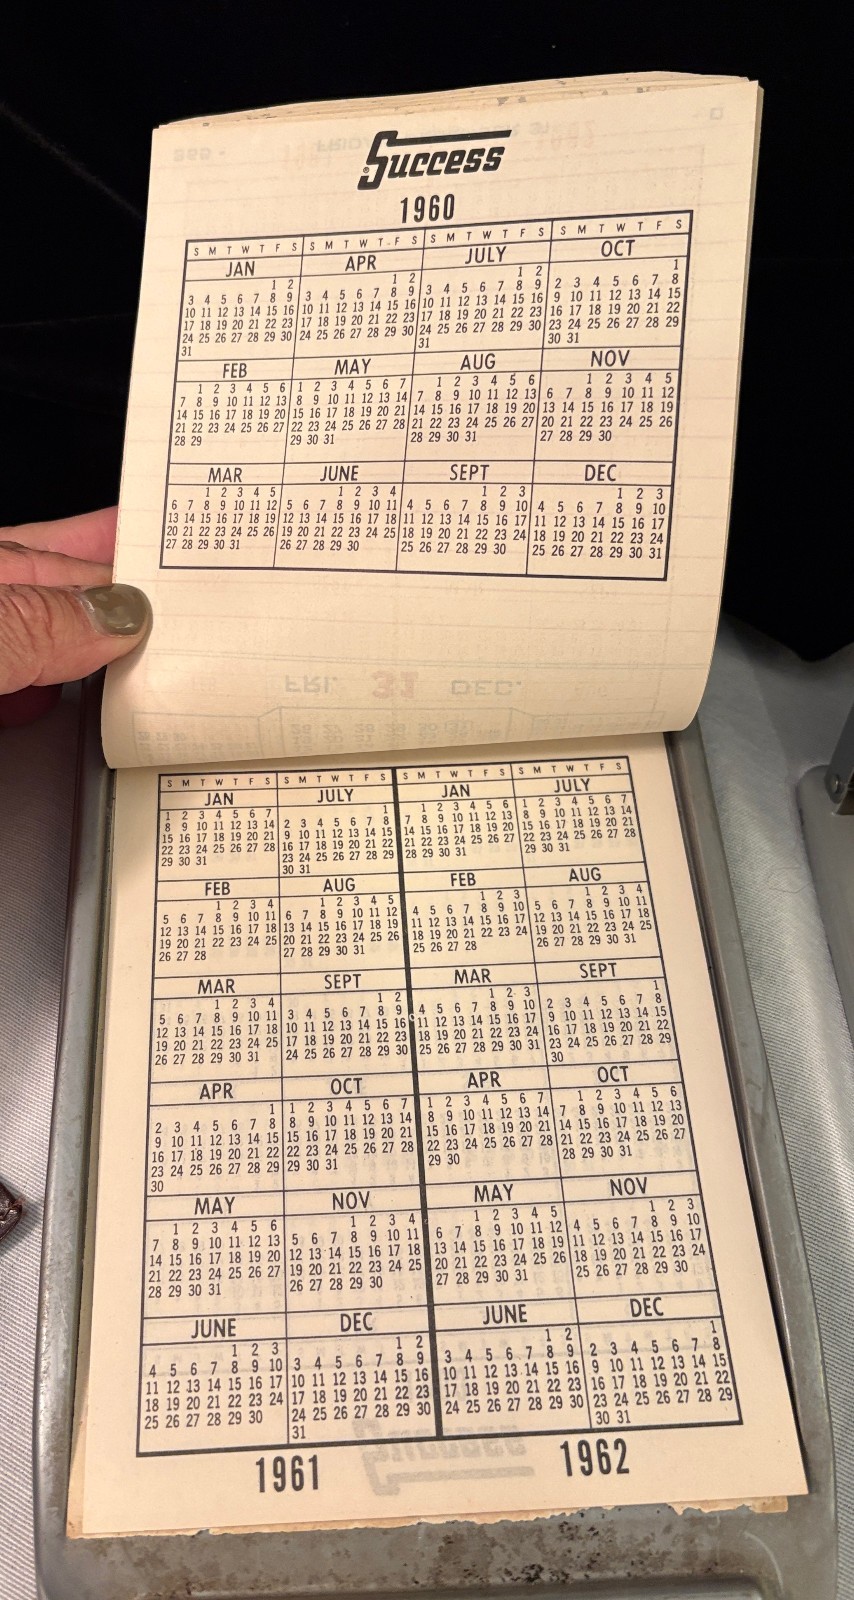 Success
1960
S M T W T F S
JAN
1 2
3 4 5 6 7 8 9
10 11 12 13 14 15 16
17 18 19 20 21 22 23
24 25 26 27 28 29 30
31
FEB
1 2 3 4 5 6
7 8 9 10 11 12 13
14 15 16 17 18 19 20
21 22 23 24 25 26 27
28 29
MAR
1 2 3 4 5
6 7 8 9 10 11 12
13 14 15 16 17 18 19
20 21 22 23 24 25 26
27 28 29 30 31
S M T W T F S
APR
1 2
3 4 5 6 7 8 9
10 11 12 13 14 15 16
17 18 19 20 21 22 23
24 25 26 27 28 29 30
MAY
1 2 3 4 5 6 7
8 9 10 11 12 13 14
15 16 17 18 19 20 21
22 23 24 25 26 27 28
29 30 31
JUNE
1 2 3 4
5 6 7 8 9 10 11
12 13 14 15 16 17 18
19 20 21 22 23 24 25
26 27 28 29 30
S M T W T F S
JULY
1 2
3 4 5 6 7 8 9
10 11 12 13 14 15 16
17 18 19 20 21 22 23
24 25 26 27 28 29 30
31
AUG
1 2 3 4 5 6
7 8 9 10 11 12 13
14 15 16 17 18 19 20
21 22 23 24 25 26 27
28 29 30 31
SEPT
1 2 3
4 5 6 7 8 9 10
11 12 13 14 15 16 17
18 19 20 21 22 23 24
25 26 27 28 29 30
S M T W T F S
OCT
1
2 3 4 5 6 7 8
9 10 11 12 13 14 15
16 17 18 19 20 21 22
23 24 25 26 27 28 29
30 31
NOV
1 2 3 4 5
6 7 8 9 10 11 12
13 14 15 16 17 18 19
20 21 22 23 24 25 26
27 28 29 30
DEC
1 2 3
4 5 6 7 8 9 10
11 12 13 14 15 16 17
18 19 20 21 22 23 24
25 26 27 28 29 30 31
S M T W T F S
JAN
1 2 3 4 5 6 7
8 9 10 11 12 13 14
15 16 17 18 19 20 21
22 23 24 25 26 27 28
29 30 31
FEB
1 2 3 4
5 6 7 8 9 10 11
12 13 14 15 16 17 18
19 20 21 22 23 24 25
26 27 28
MAR
1 2 3 4
5 6 7 8 9 10 11
12 13 14 15 16 17 18
19 20 21 22 23 24 25
26 27 28 29 30 31
APR
1
2 3 4 5 6 7 8
9 10 11 12 13 14 15
16 17 18 19 20 21 22
23 24 25 26 27 28 29
30
MAY
1 2 3 4 5 6
7 8 9 10 11 12 13
14 15 16 17 18 19 20
21 22 23 24 25 26 27
28 29 30 31
JUNE
1 2 3
4 5 6 7 8 9 10
11 12 13 14 15 16 17
18 19 20 21 22 23 24
25 26 27 28 29 30
S M T W T F S
JULY
1
2 3 4 5 6 7 8
9 10 11 12 13 14 15
16 17 18 19 20 21 22
23 24 25 26 27 28 29
30 31
AUG
1 2 3 4 5
6 7 8 9 10 11 12
13 14 15 16 17 18 19
20 21 22 23 24 25 26
27 28 29 30 31
SEPT
1 2
3 4 5 6 7 8 9
10 11 12 13 14 15 16
17 18 19 20 21 22 23
24 25 26 27 28 29 30
OCT
1 2 3 4 5 6 7
8 9 10 11 12 13 14
15 16 17 18 19 20 21
22 23 24 25 26 27 28
29 30 31
NOV
1 2 3 4
5 6 7 8 9 10 11
12 13 14 15 16 17 18
19 20 21 22 23 24 25
26 27 28 29 30
DEC
1 2
3 4 5 6 7 8 9
10 11 12 13 14 15 16
17 18 19 20 21 22 23
24 25 26 27 28 29 30
31
1961
S M T W T F S
JAN
1 2 3 4 5 6
7 8 9 10 11 12 13
14 15 16 17 18 19 20
21 22 23 24 25 26 27
28 29 30 31
FEB
1 2 3
4 5 6 7 8 9 10
11 12 13 14 15 16 17
18 19 20 21 22 23 24
25 26 27 28
MAR
1 2 3
4 5 6 7 8 9 10
11 12 13 14 15 16 17
18 19 20 21 22 23 24
25 26 27 28 29 30 31
APR
1 2 3 4 5 6 7
8 9 10 11 12 13 14
15 16 17 18 19 20 21
22 23 24 25 26 27 28
29 30
MAY
1 2 3 4 5
6 7 8 9 10 11 12
13 14 15 16 17 18 19
20 21 22 23 24 25 26
27 28 29 30 31
JUNE
1 2
3 4 5 6 7 8 9
10 11 12 13 14 15 16
17 18 19 20 21 22 23
24 25 26 27 28 29 30
S M T W T F S
JULY
1 2 3 4 5 6 7
8 9 10 11 12 13 14
15 16 17 18 19 20 21
22 23 24 25 26 27 28
29 30 31
AUG
1 2 3 4
5 6 7 8 9 10 11
12 13 14 15 16 17 18
19 20 21 22 23 24 25
26 27 28 29 30 31
SEPT
1
2 3 4 5 6 7 8
9 10 11 12 13 14 15
16 17 18 19 20 21 22
23 24 25 26 27 28 29
30
OCT
1 2 3 4 5 6
7 8 9 10 11 12 13
14 15 16 17 18 19 20
21 22 23 24 25 26 27
28 29 30 31
NOV
1 2 3
4 5 6 7 8 9 10
11 12 13 14 15 16 17
18 19 20 21 22 23 24
25 26 27 28 29 30
DEC
1
2 3 4 5 6 7 8
9 10 11 12 13 14 15
16 17 18 19 20 21 22
23 24 25 26 27 28 29
30 31
1962